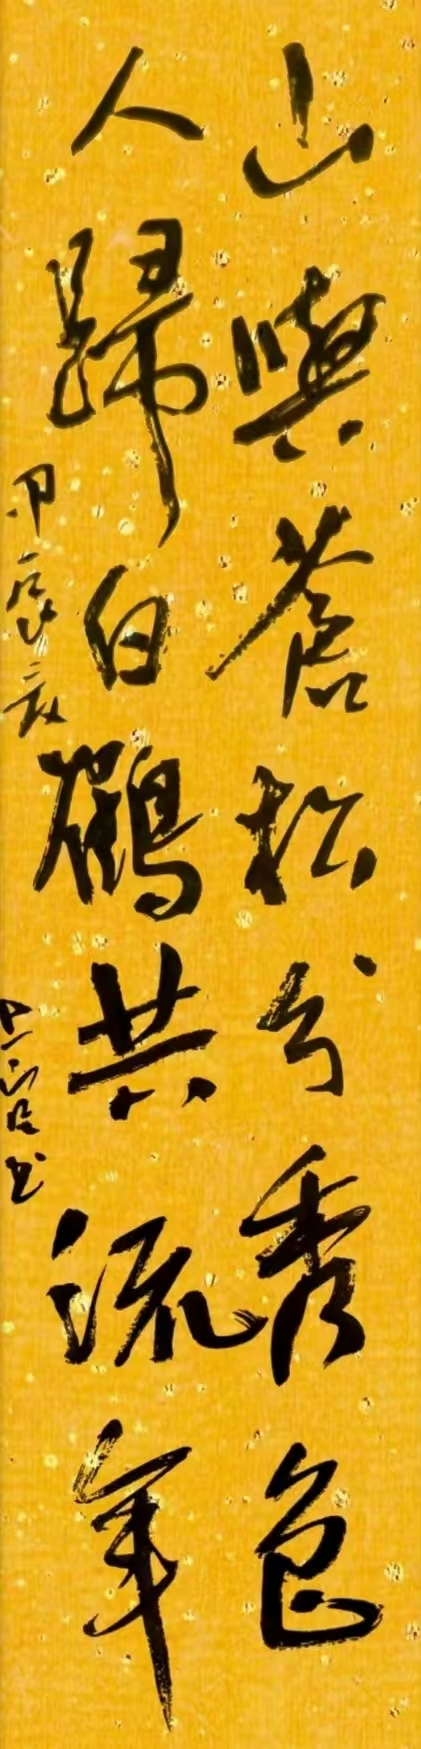 山與蒼松分秀色
人歸白鶴共流年